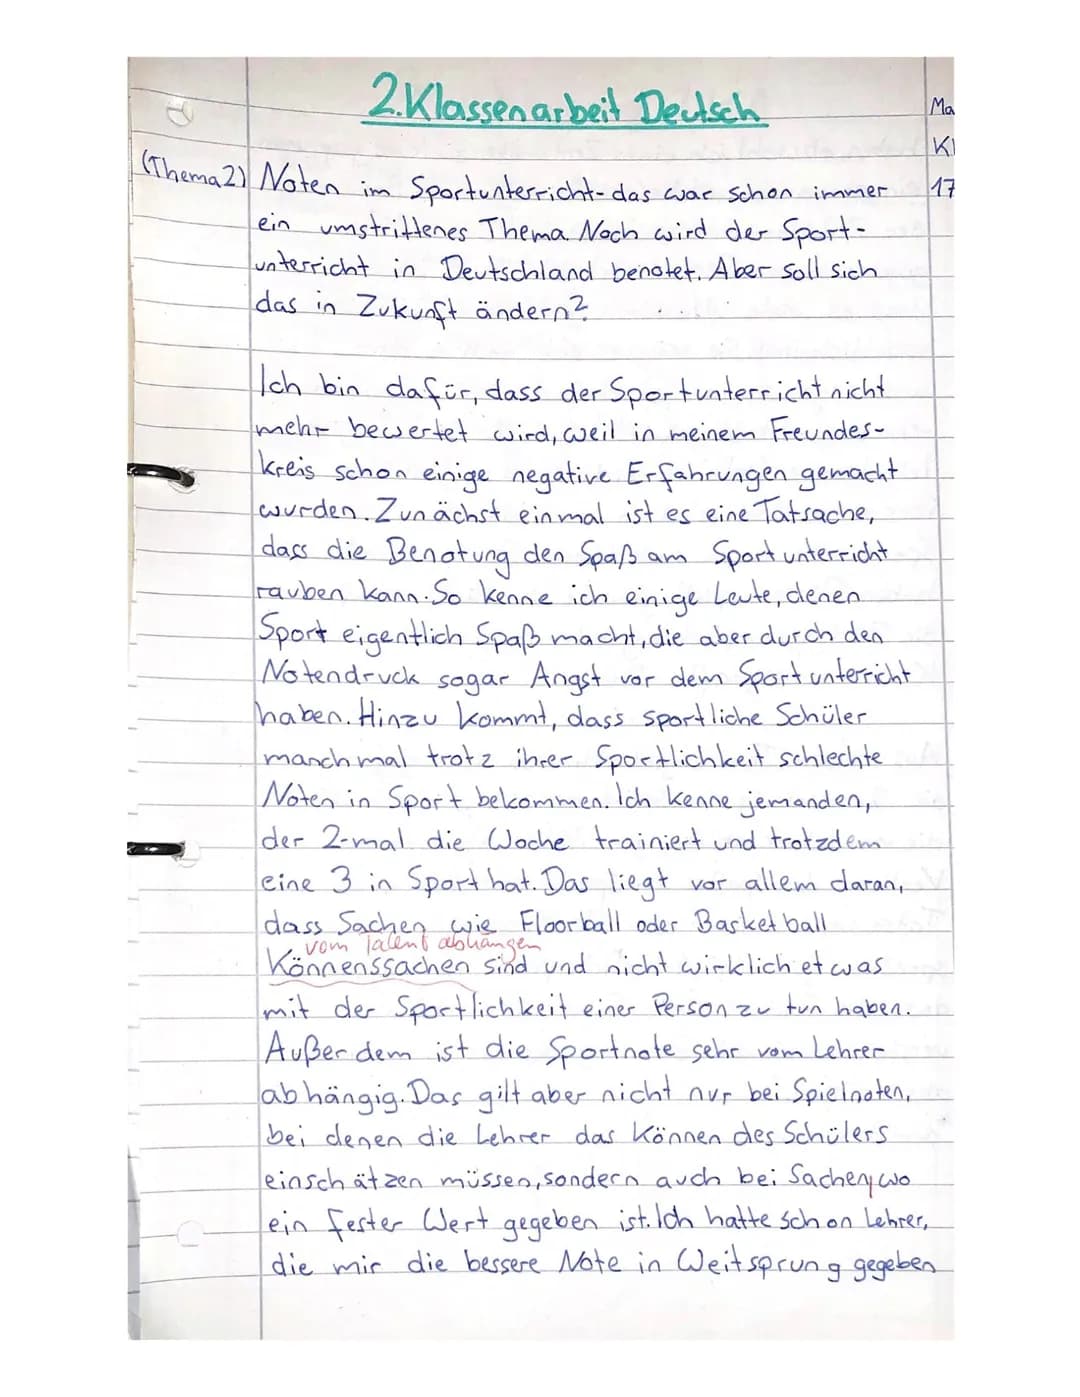 2.Klassenarbeit Deutsch
Ma
Kl
(Thema 2) Noten im Sportunterricht-das war schon immer
17
ein umstrittenes Thema. Noch wird der Sport-
unterricht in Deutschland benotet. Aber soll sich
das in Zukunft ändern?
Ich bin dafür, dass der Sportunterricht nicht
mehr bewertet wird, weil in meinem Freundes-
kreis schon einige negative Erfahrungen gemacht
wurden. Zunächst einmal ist es eine Tatsache,
dass die Benotung den Spaß am Sportunterricht
rauben kann. So kenne ich einige Leute, denen
Sport eigentlich Spaß macht, die aber durch den
Notendruck sogar Angst vor dem Sportunterricht
haben. Hinzu kommt, dass sportliche Schüler
manchmal trotz ihrer Sportlichkeit schlechte
Noten in Sport bekommen. Ich kenne jemanden,
der 2-mal die Woche trainiert und trotzdem
eine 3 in Sport hat. Das liegt vor allem daran,
dass Sachen wie Floorball oder Basketball
vom Talent abhängen
Könnenssachen sind und nicht wirklich etwas
mit der Sportlichkeit einer Person zu tun haben.
Außerdem ist die Sportnote sehr vom Lehrer
abhängig. Das gilt aber nicht nur bei Spielnoten,
bei denen die Lehrer das Können des Schülers
einschätzen müssen, sondern auch bei Sachen, wo
ein fester Wert gegeben ist. Ich hatte schon Lehrer,
die mir die bessere Note in Weitsprung gegeben